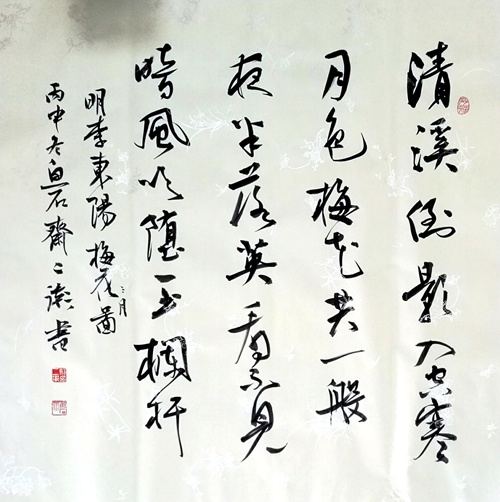 清溪倒影入空寒
月色梅花共一般
夜半落英看不見
暗風吹墮玉欄杆
明李東陽梅花圖
丙申冬 石齋 書